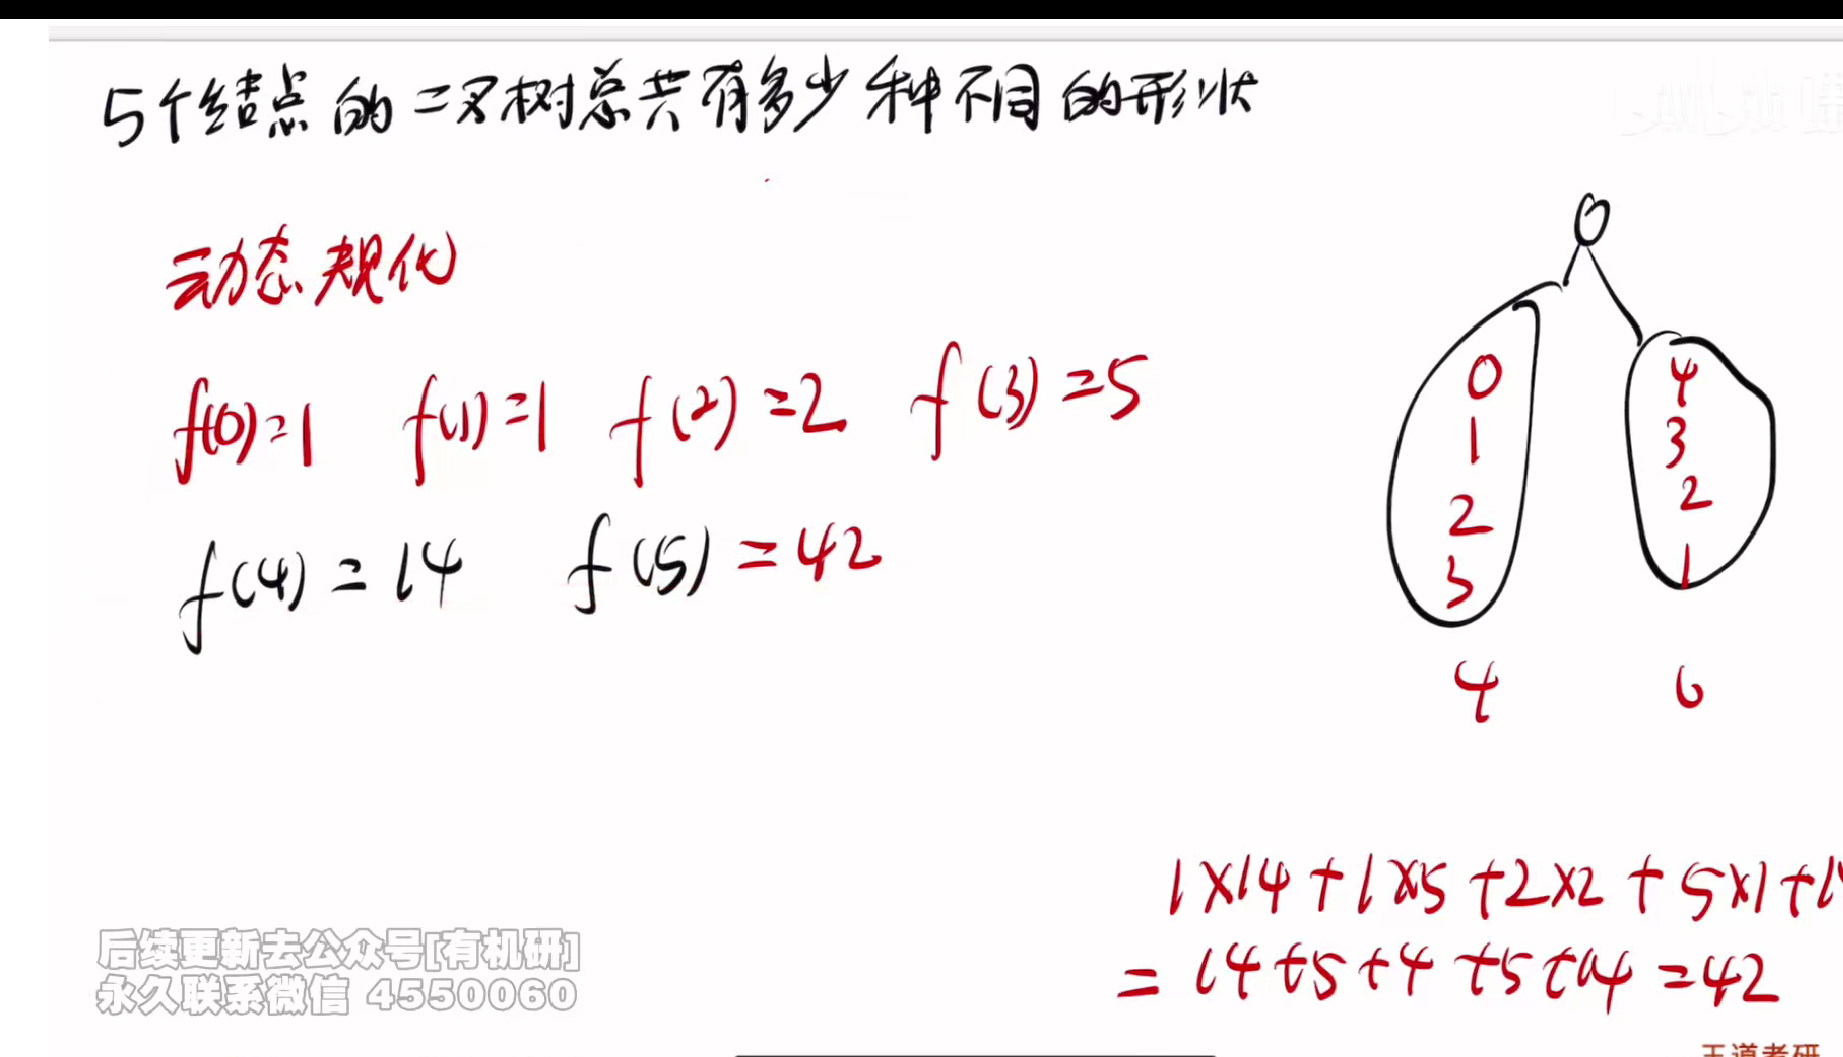 5个结点的二叉树总共有多少种不同的形状
动态规化
f(0)=1 f(1)=1 f(2)=2 f(3)=5
f(4)=14 f(5)=42
0 4
1 3
2 2
3 1
4 0
1×14+1×5+2×2+5×1+1
=14+5+4+5+14=42
后续更新去公众号[有机研]
永久联系微信 4550060
王道考研